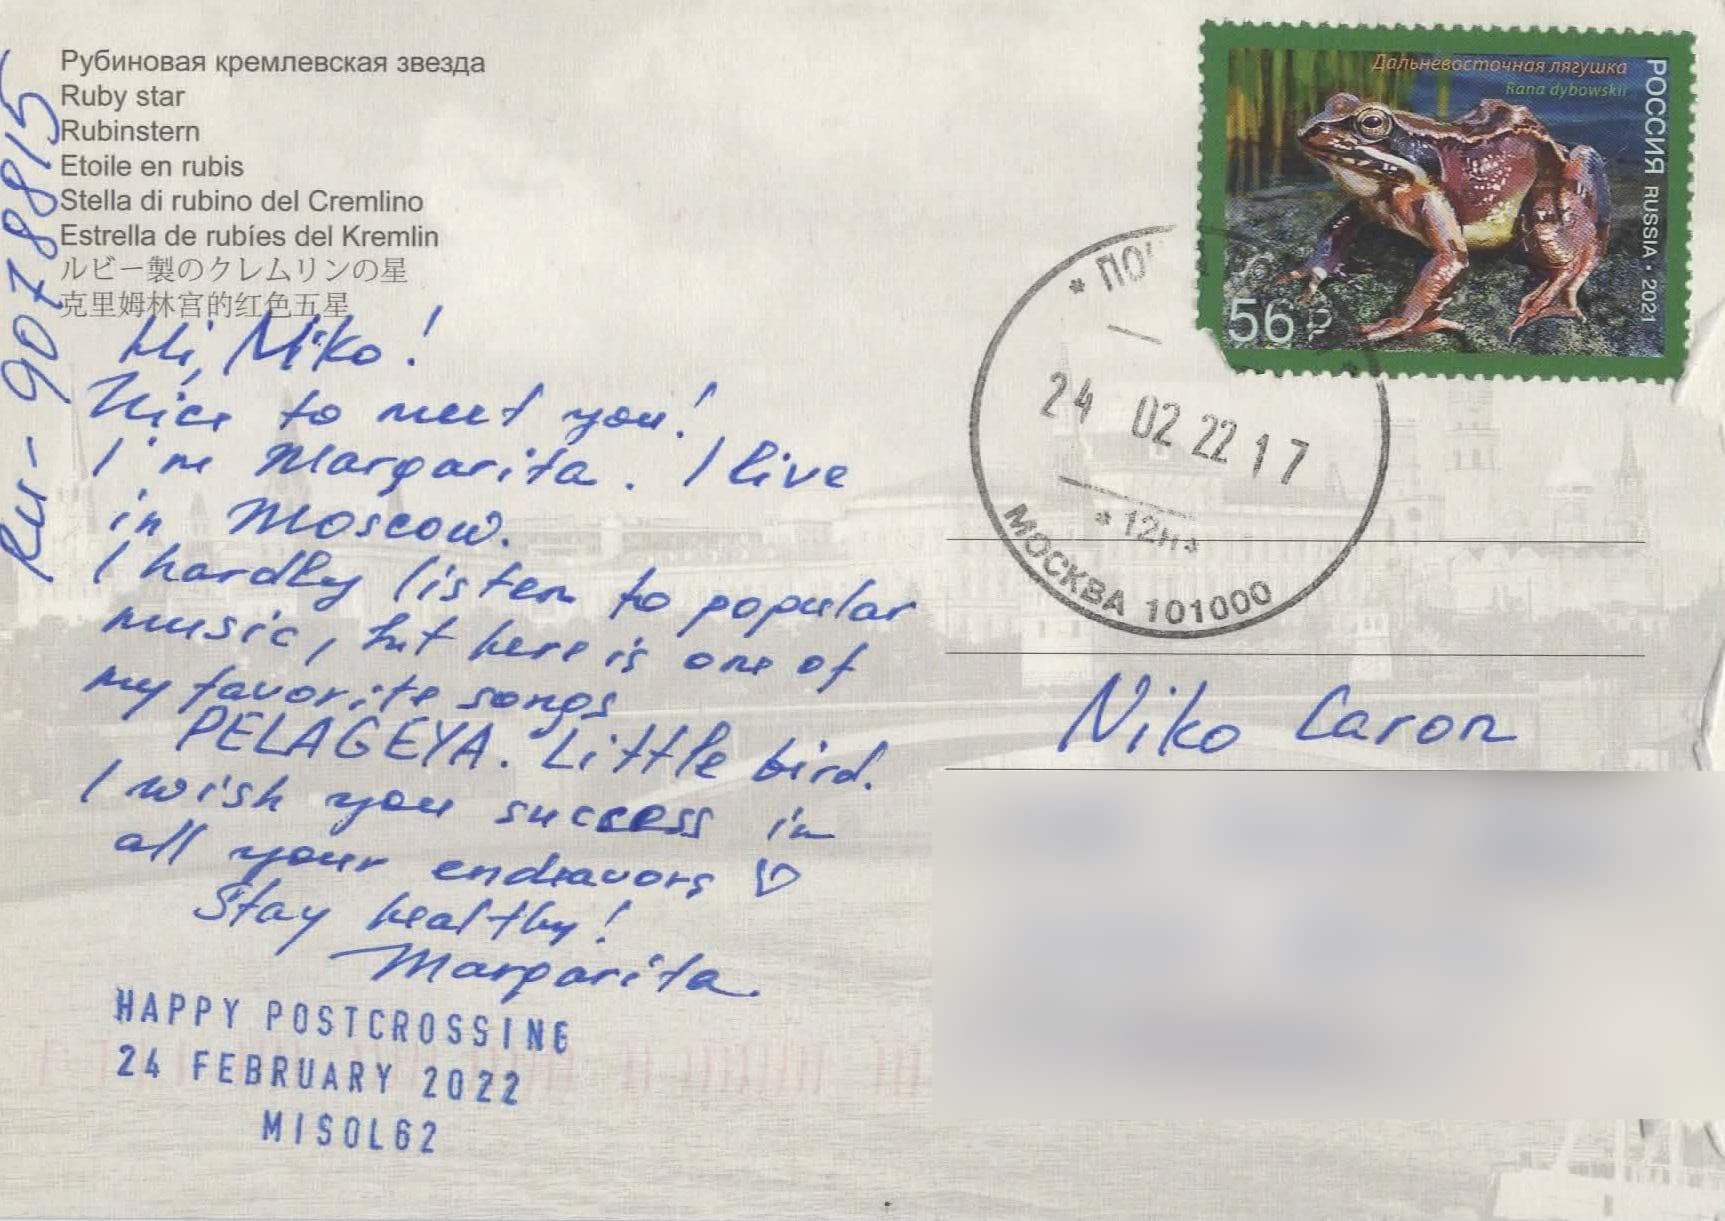 Рубиновая кремлевская звезда
Ruby star
Rubinstern
Etoile en rubis
Stella di rubino del Cremlino
Estrella de rubíes del Kremlin
ルビー製のクレムリンの星
克里姆林宫的红色五星
Ru-9078815
Hi, Niko!
Nice to meet you!
I'm Margarita. I live
in Moscow.
I hardly listen to popular
music, but here is one of
my favorite songs
PELAGEYA. Little bird.
I wish you success in
all your endeavors ♡
Stay healthy!
Margarita.
HAPPY POSTCROSSING
24 FEBRUARY 2022
MISOL62
Дальневосточная лягушка
Rana dybowskii
РОССИЯ RUSSIA • 2021
56 ₽
24 02 22 17
* 12н *
МОСКВА 101000
Niko Caron